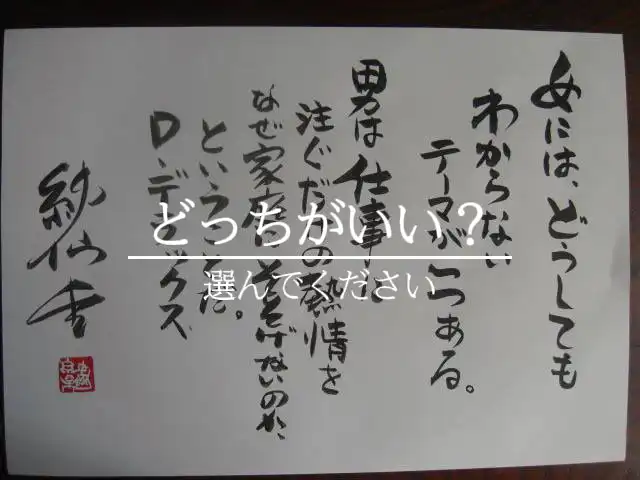 女には、どうしても
わからない
テーマが一つある。
男は仕事に
注ぐだけの熱情を
なぜ家庭にそそげないのか、
ということだ。
D・ディックス
どっちがいい？
選んでください